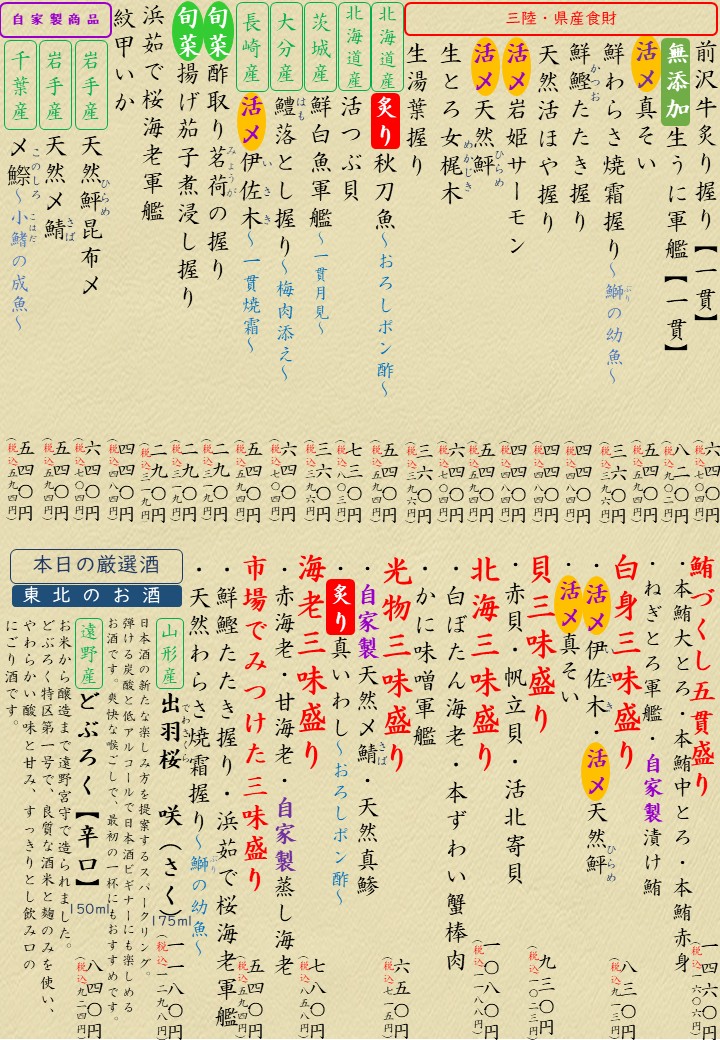 三陸・県産食財
前沢牛炙り握り【一貫】 六四〇円(税込七〇四円)
無添加 生うに軍艦【一貫】 八二〇円(税込九〇二円)
活〆 真そい 五四〇円(税込五九四円)
鮮わらさ焼霜握り～鰤の幼魚～ 三六〇円(税込三九六円)
ぶり
鮮鰹たたき握り 四四〇円(税込四八四円)
かつお
天然活ほや握り 四四〇円(税込四八四円)
活〆 岩姫サーモン 四四〇円(税込四八四円)
活〆 天然鮃 五四〇円(税込五九四円)
ひらめ
生とろ女梶木 六四〇円(税込七〇四円)
めかじき
生湯葉握り 三六〇円(税込三九六円)
北海道産 炙り 秋刀魚～おろしポン酢～ 五四〇円(税込五九四円)
北海道産 活つぶ貝 七三〇円(税込八〇三円)
茨城産 鮮白魚軍艦～一貫月見～ 三六〇円(税込三九六円)
大分産 鱧落とし握り～梅肉添え～ 六四〇円(税込七〇四円)
はも
長崎産 活〆 伊佐木～一貫焼霜～ 五四〇円(税込五九四円)
いさき
旬菜 酢取り茗荷の握り 二九〇円(税込三一九円)
みょうが
旬菜 揚げ茄子煮浸し握り 二九〇円(税込三一九円)
浜茹で桜海老軍艦 二九〇円(税込三一九円)
紋甲いか 四四〇円(税込四八四円)
自家製商品
岩手産 天然鮃昆布〆 六四〇円(税込七〇四円)
ひらめ
岩手産 天然〆鯖 五四〇円(税込五九四円)
さば
千葉産 〆鰶～小鰭の成魚～ 五四〇円(税込五九四円)
このしろ こはだ
鮪づくし五貫盛り 一四六〇円(税込一六〇六円)
・本鮪大とろ・本鮪中とろ・本鮪赤身
・ねぎとろ軍艦・自家製漬け鮪
白身三味盛り 八三〇円(税込九一三円)
・活〆 伊佐木・活〆 天然鮃
いさき ひらめ
・活〆 真そい
貝三味盛り 九三〇円(税込一〇二三円)
・赤貝・帆立貝・活北寄貝
北海三味盛り 一〇八〇円(税込一一八八円)
・白ぼたん海老・本ずわい蟹棒肉
・かに味噌軍艦
光物三味盛り 六五〇円(税込七一五円)
・自家製天然〆鯖・天然真鯵
さば
・炙り 真いわし～おろしポン酢～
海老三味盛り 七八〇円(税込八五八円)
・赤海老・甘海老・自家製蒸し海老
市場でみつけた三味盛り 五四〇円(税込五九四円)
・鮮鰹たたき握り・浜茹で桜海老軍艦
・天然わらさ焼霜握り～鰤の幼魚～
ぶり
本日の厳選酒
東北のお酒
山形産 出羽桜 咲（さく） 175ml 一一八〇円(税込一二九八円)
でわざくら
日本酒の新たな楽しみ方を提案するスパークリング。
弾ける炭酸と低アルコールで日本酒ビギナーにも楽しめる
お酒です。爽快な喉ごしで、最初の一杯にもおすすめです。
遠野産 どぶろく【辛口】 150ml 八四〇円(税込九二四円)
お米から醸造まで遠野宮守で造られました。
どぶろく特区第一号で、良質な酒米と麹のみを使い、
やわらかい酸味と甘み、すっきりとし飲み口の
にごり酒です。